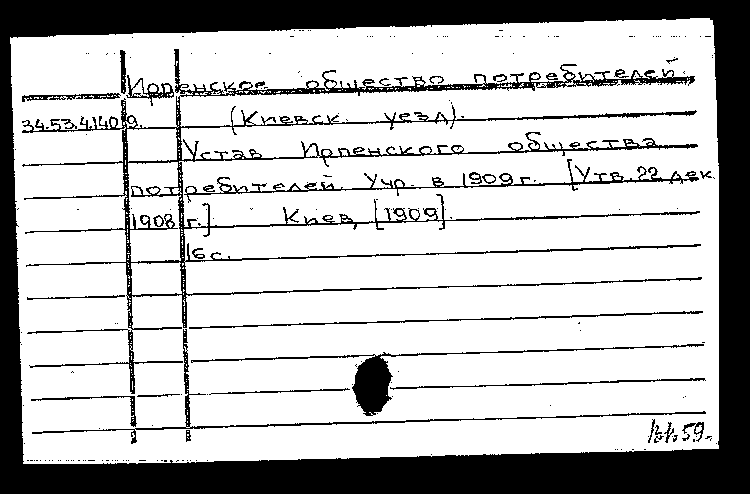 Ирпенское общество потребителей.
34.53.4.140 9. (Киевск. уезд).
Устав Ирпенского общества
потребителей. Учр. в 1909 г. [Утв. 22 дек.
1908 г.] Киев, [1909].
16 с.
59.